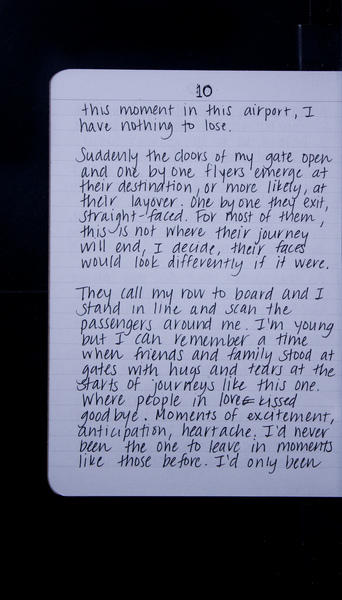 10
this moment in this airport, I
have nothing to lose.
Suddenly the doors of my gate open
and one by one flyers emerge at
their destination, or more likely, at
their layover. One by one they exit,
straight-faced. For most of them,
this is not where their journey
will end, I decide, their faces
would look differently if it were.
They call my row to board and I
stand in line and scan the
passengers around me. I'm young
but I can remember a time
when friends and family stood at
gates with hugs and tears at the
starts of journeys like this one.
Where people in love kissed
goodbye. Moments of excitement,
anticipation, heartache. I'd never
been the one to leave in moments
like those before. I'd only been